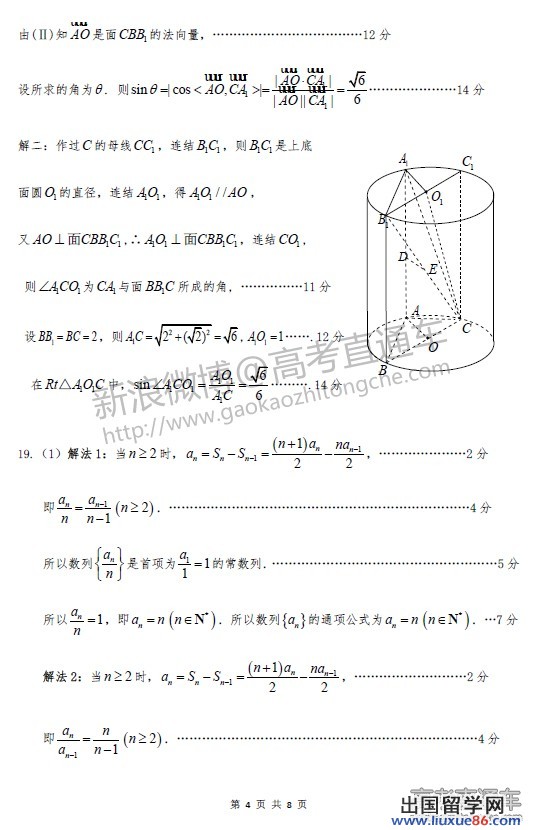 由(II)知 AO 是面 CBB₁ 的法向量，………………………………12 分
设所求的角为 θ．则 sin θ =| cos < AO, CA₁ >|= | AO · CA₁ | / (| AO || CA₁ |) = √6 / 6 …………………14 分
解二：作过 C 的母线 CC₁，连结 B₁C₁，则 B₁C₁ 是上底
面圆 O₁ 的直径，连结 A₁O₁，得 A₁O₁ // AO，
又 AO ⊥ 面CBB₁C₁,∴ A₁O₁ ⊥ 面CBB₁C₁，连结 CO₁，
则 ∠A₁CO₁ 为 CA₁ 与面 BB₁C 所成的角，……………11 分
设 BB₁ = BC = 2，则 A₁C = √(2² + (√2)²) = √6 , A₁O₁ = 1 …… 12 分
在 Rt△A₁O₁C 中，sin ∠A₁CO₁ = A₁O₁ / A₁C = √6 / 6 ………．14 分
A₁
C₁
O₁
B₁
D
E
A
C
O
B
新浪微博@高考直通车
http://www.gaokaozhitongche.com
19.（1）解法 1：当 n ≥ 2 时，aₙ = Sₙ − Sₙ₋₁ = (n+1)aₙ / 2 − naₙ₋₁ / 2，…………………2 分
即 aₙ / n = aₙ₋₁ / (n−1) (n ≥ 2)．………………………………………………4 分
所以数列 {aₙ / n} 是首项为 a₁ / 1 = 1 的常数列．………………………………………5 分
所以 aₙ / n = 1，即 aₙ = n (n ∈ N*)．所以数列 {aₙ} 的通项公式为 aₙ = n (n ∈ N*)．…7 分
解法 2：当 n ≥ 2 时，aₙ = Sₙ − Sₙ₋₁ = (n+1)aₙ / 2 − naₙ₋₁ / 2，………………………2 分
即 aₙ / aₙ₋₁ = n / (n−1) (n ≥ 2)．………………………………………………4 分
第 4 页 共 8 页
高考直通车
出国留学网
www.liuxue86.com